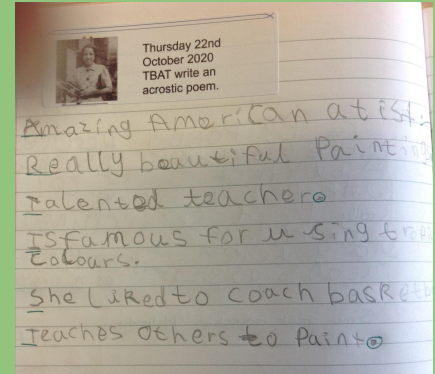 Thursday 22nd
October 2020
TBAT write an
acrostic poem.
Amazing American atist.
Really beautiful Painting
Talented teacher.
Is famous for using
Colours.
She liked to coach
Teaches others to Paint.